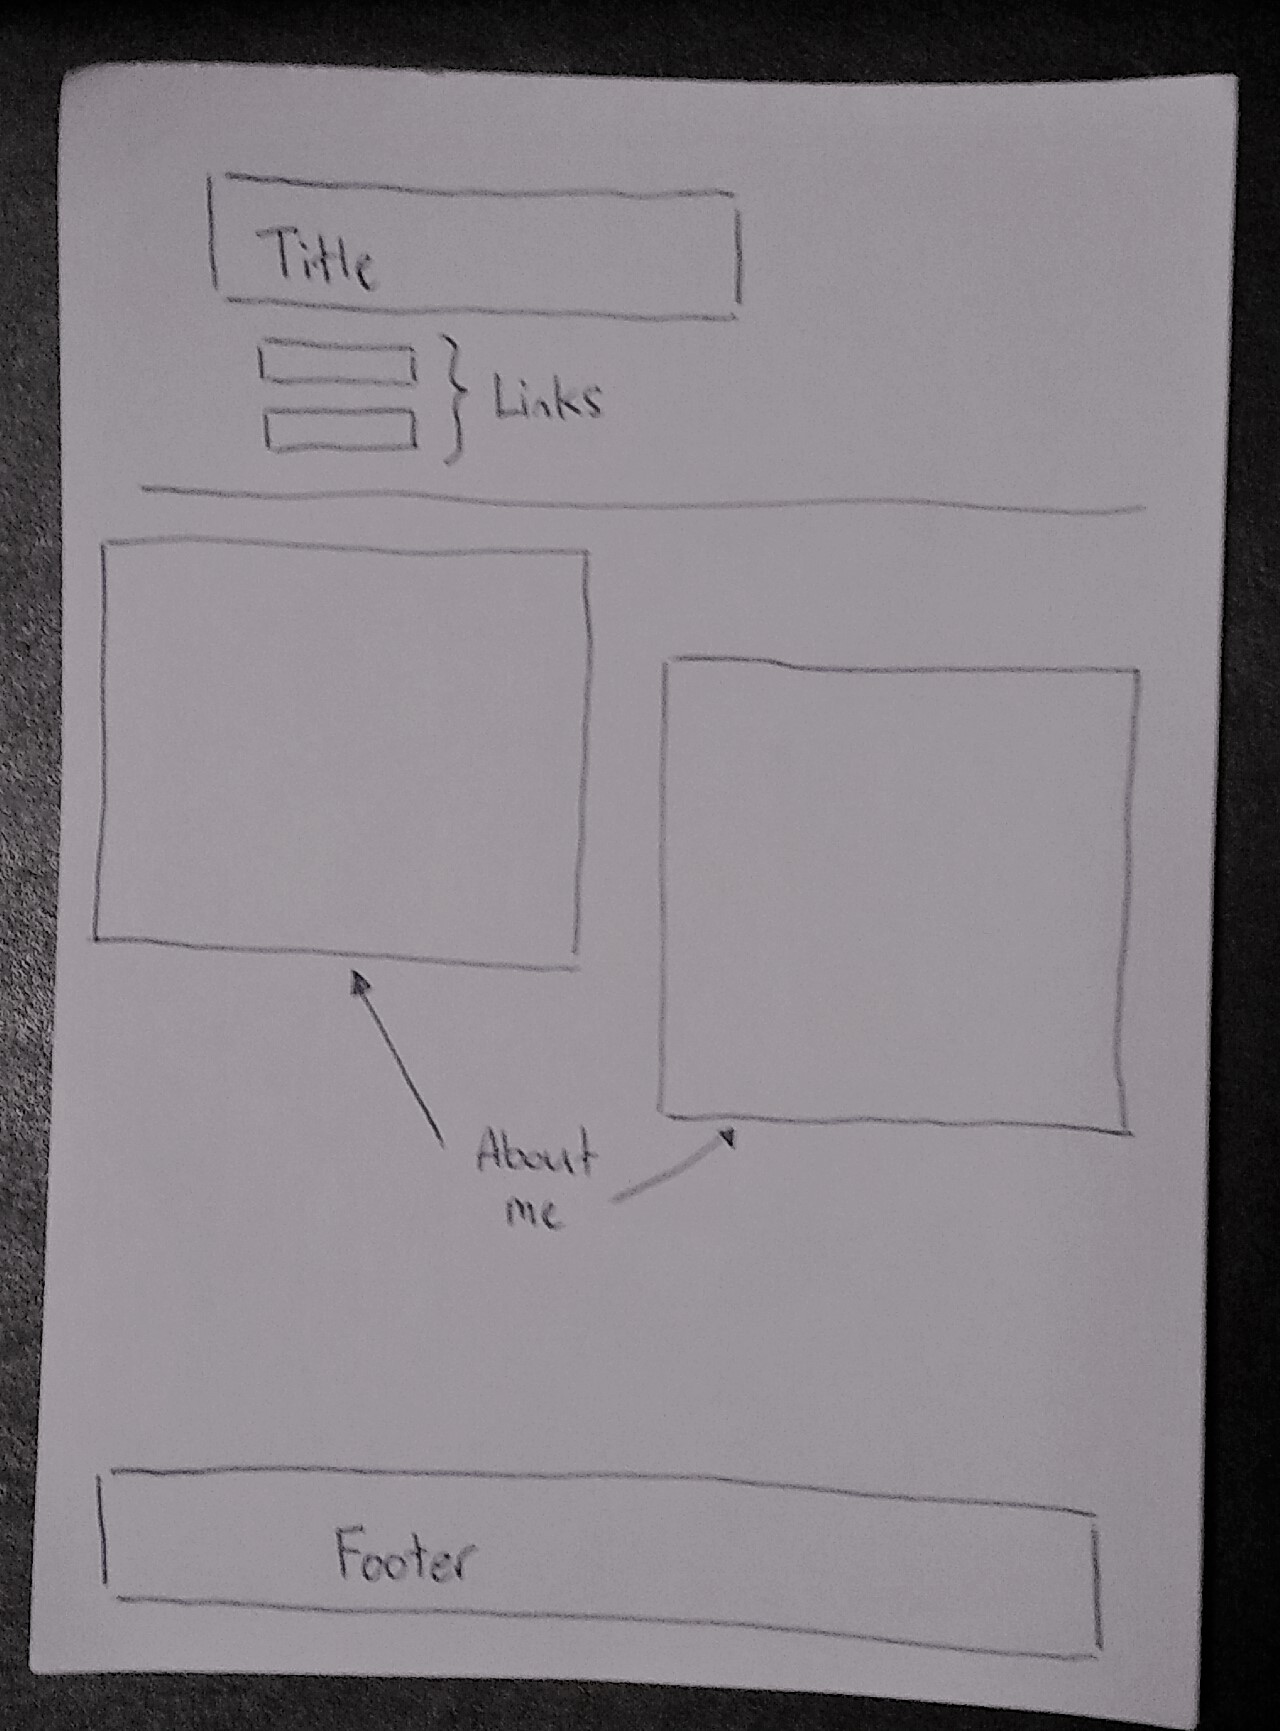 Title
Links
About
me
Footer